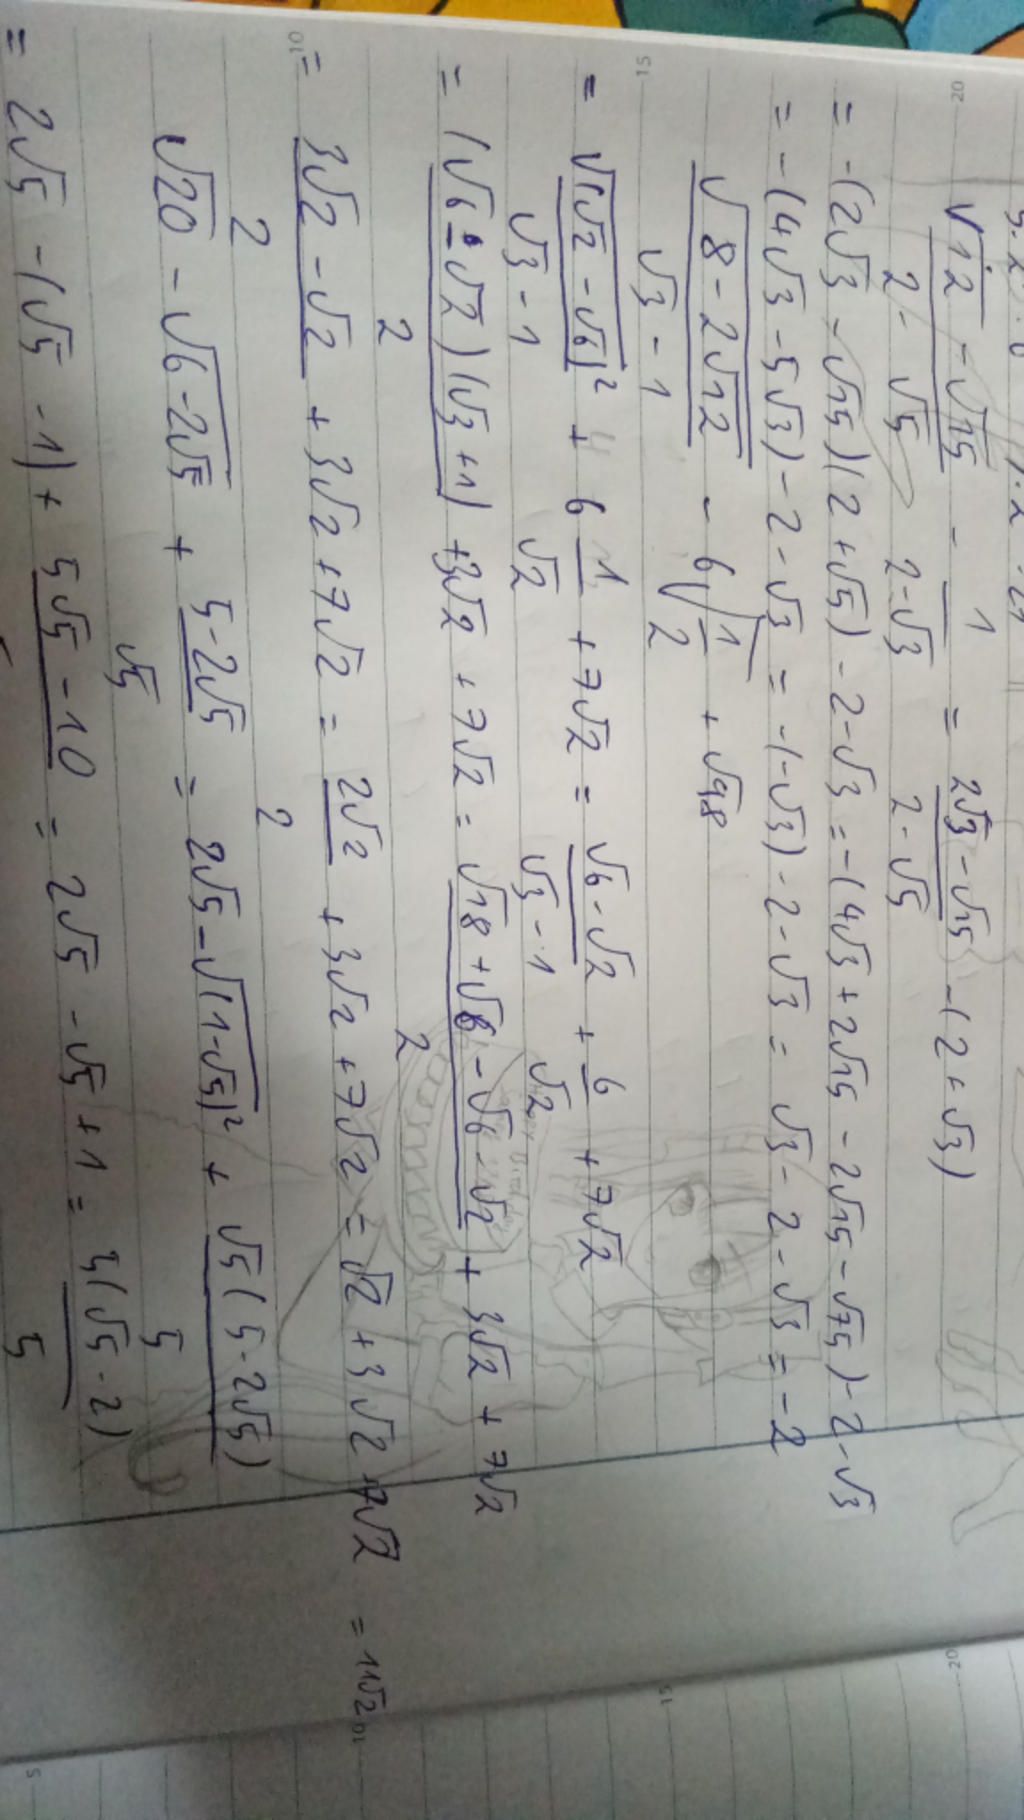 √12 - √15 / 2 - √5 - 1 / 2-√3 = 2√3 - √15 / 2 - √5 - (2 + √3)
= -(2√3 - √15)(2+√5) - 2-√3 = -(4√3 + 2√15 - 2√15 - √75) - 2 - √3
= -(4√3 - 5√3) - 2 - √3 = -(-√3) - 2 - √3 = √3 - 2 - √3 = -2
√8 - 2√12 / √3 - 1 - 6√1/2 + √98
= √(√2 - √6)² / √3 - 1 + 6 1/√2 + 7√2 = √6 - √2 / √3 - 1 + 6/√2 + 7√2
= (√6 - √2)(√3 + 1) / 2 + 3√2 + 7√2 = √18 + √6 - √6 - √2 / 2 + 3√2 + 7√2
= 3√2 - √2 / 2 + 3√2 + 7√2 = 2√2 / 2 + 3√2 + 7√2 = √2 + 3√2 + 7√2 = 11√2
√20 - √6-2√5 + 5-2√5 / √5 = 2√5 - √(1-√5)² + √5(5-2√5) / 5
= 2√5 - (√5 - 1) + 5√5 - 10 / 5 = 2√5 - √5 + 1 = 5(√5 - 2) / 5
20
15
10
20
15
10
5